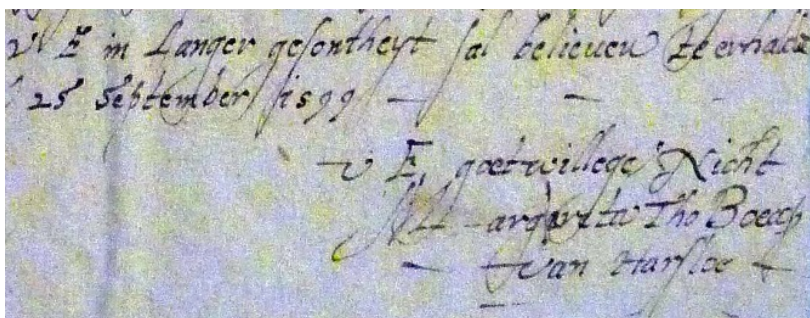 v E in Langer gesontheyt sal belieuen te erhalde
25 September 1599
v E, goetwillege Nicht
Margareta Tho Boecop
van Harsloe